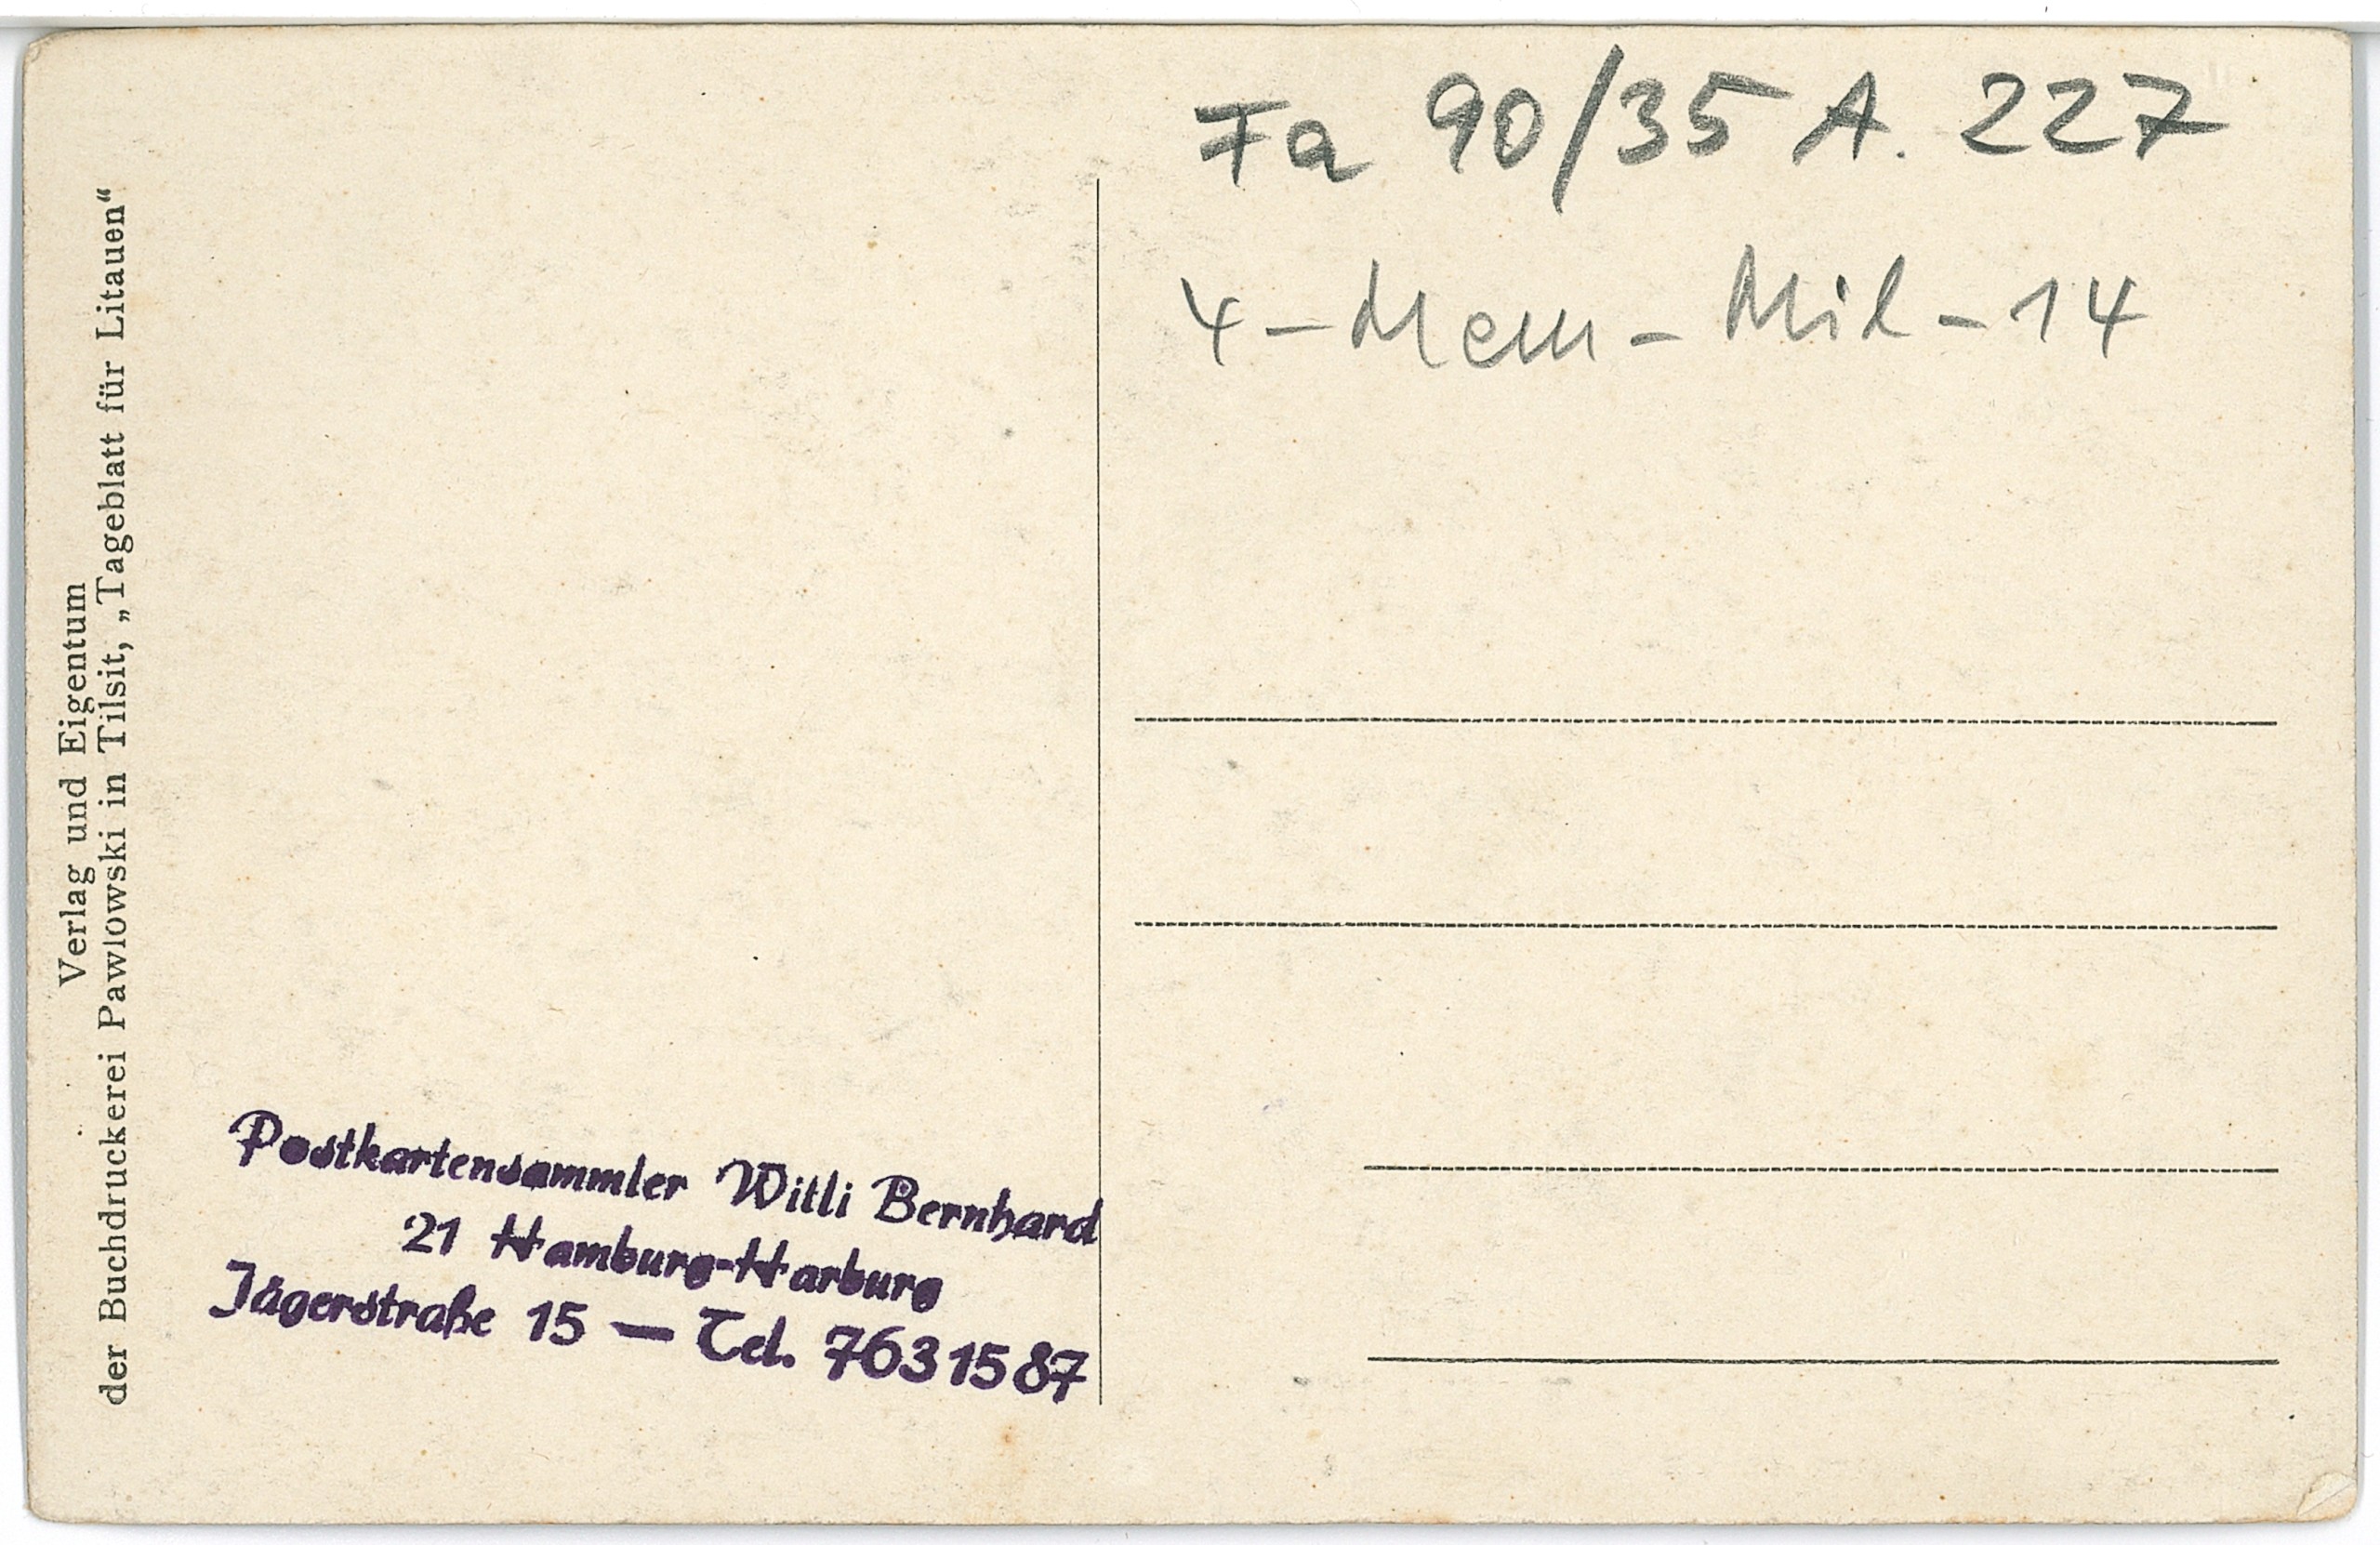 Fa 90/35 A. 227
4-Mem-Mil-14
Verlag und Eigentum
der Buchdruckerei Pawlowski in Tilsit, „Tageblatt für Litauen“
Postkartensammler Willi Bernhard
21 Hamburg-Harburg
Jägerstraße 15 — Tel. 7631587